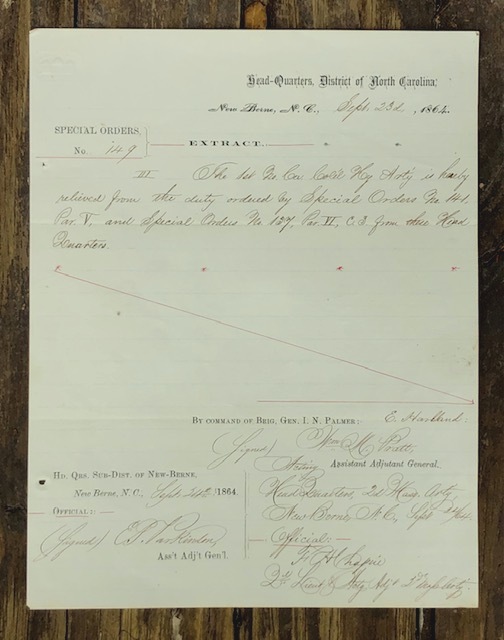 Head-Quarters, District of North Carolina,
New Berne, N. C., Sept. 23d, 1864.
SPECIAL ORDERS,
No. 149
EXTRACT.
III The 1st No Ca Cold Hy Arty is hereby
relieved from the duty ordered by Special Orders No 141,
Par. V, and Special Orders No 127, Par VI, C.S. from these Head
Quarters.
BY COMMAND OF BRIG. GEN. I. N. PALMER:- E. Harland:
(Signed) Wm M Pratt,
Acting Assistant Adjutant General.
HD. QRS. SUB-DIST. OF NEW-BERNE,
New Berne, N. C., Sept. 24th 1864.
OFFICIAL:—
(Signed)
Ass't Adj't Gen'l.
Head Quarters, 2d Mass Arty,
New Berne, N.C., Sept 24/64.
Official:—
2d Lieut & Actg Adjt 2d Mass Arty.